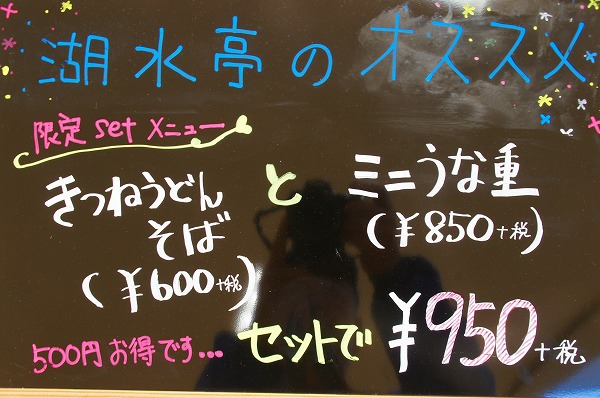 湖水亭のオススメ
限定 set メニュー
きつねうどん と ミニうな重
そば (¥850+税)
(¥600+税)
500円お得です... セットで ¥950+税